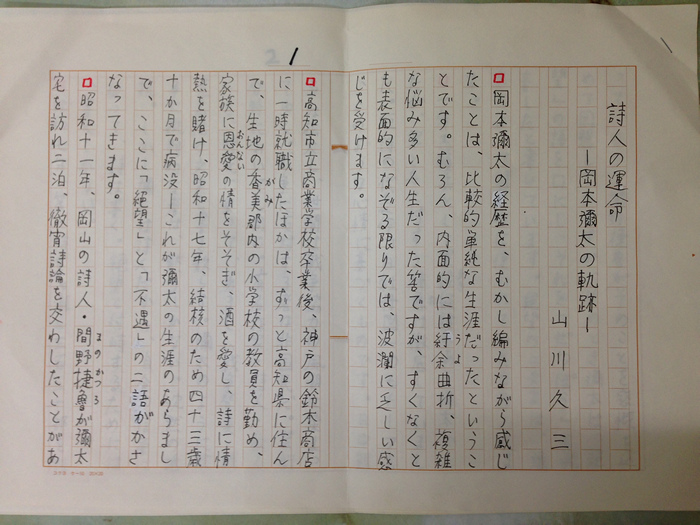 1
詩人の運命
ー岡本彌太の軌跡ー
山川久三
岡本彌太の経歴を、むかし編みながら感じ
たことは、比較的単純な生涯だったというこ
とです。むろん、内面的には紆余曲折、複雑
うよ
な悩み多い人生だった筈ですが、すくなくと
も表面的になぞる限りでは、波瀾に乏しい感
じを受けます。
高知市立商業学校卒業後、神戸の鈴木商店
に一時就職したほかは、ずっと高知県に住ん
で、生地の香美郡内の小学校の教員を勤め、
がみ
家族に恩愛の情をそそぎ、酒を愛し、詩に情
おんない
熱を賭け、昭和十七年、結核のため四十三歳
十か月で病没ーこれが彌太の生涯のあらまし
で、ここに「絶望」と「不遇」の二語がかさ
なってきます。
昭和十一年、岡山の詩人・間野捷魯が彌太
まのかつろ
宅を訪れ二泊、徹宵詩論を交わしたことがあ